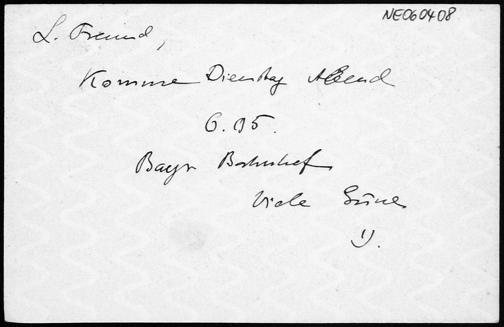 NE060408
L. Freund,
Komme Dienstag Abend
6.05.
Bayr Bahnhof
Viele Grüße